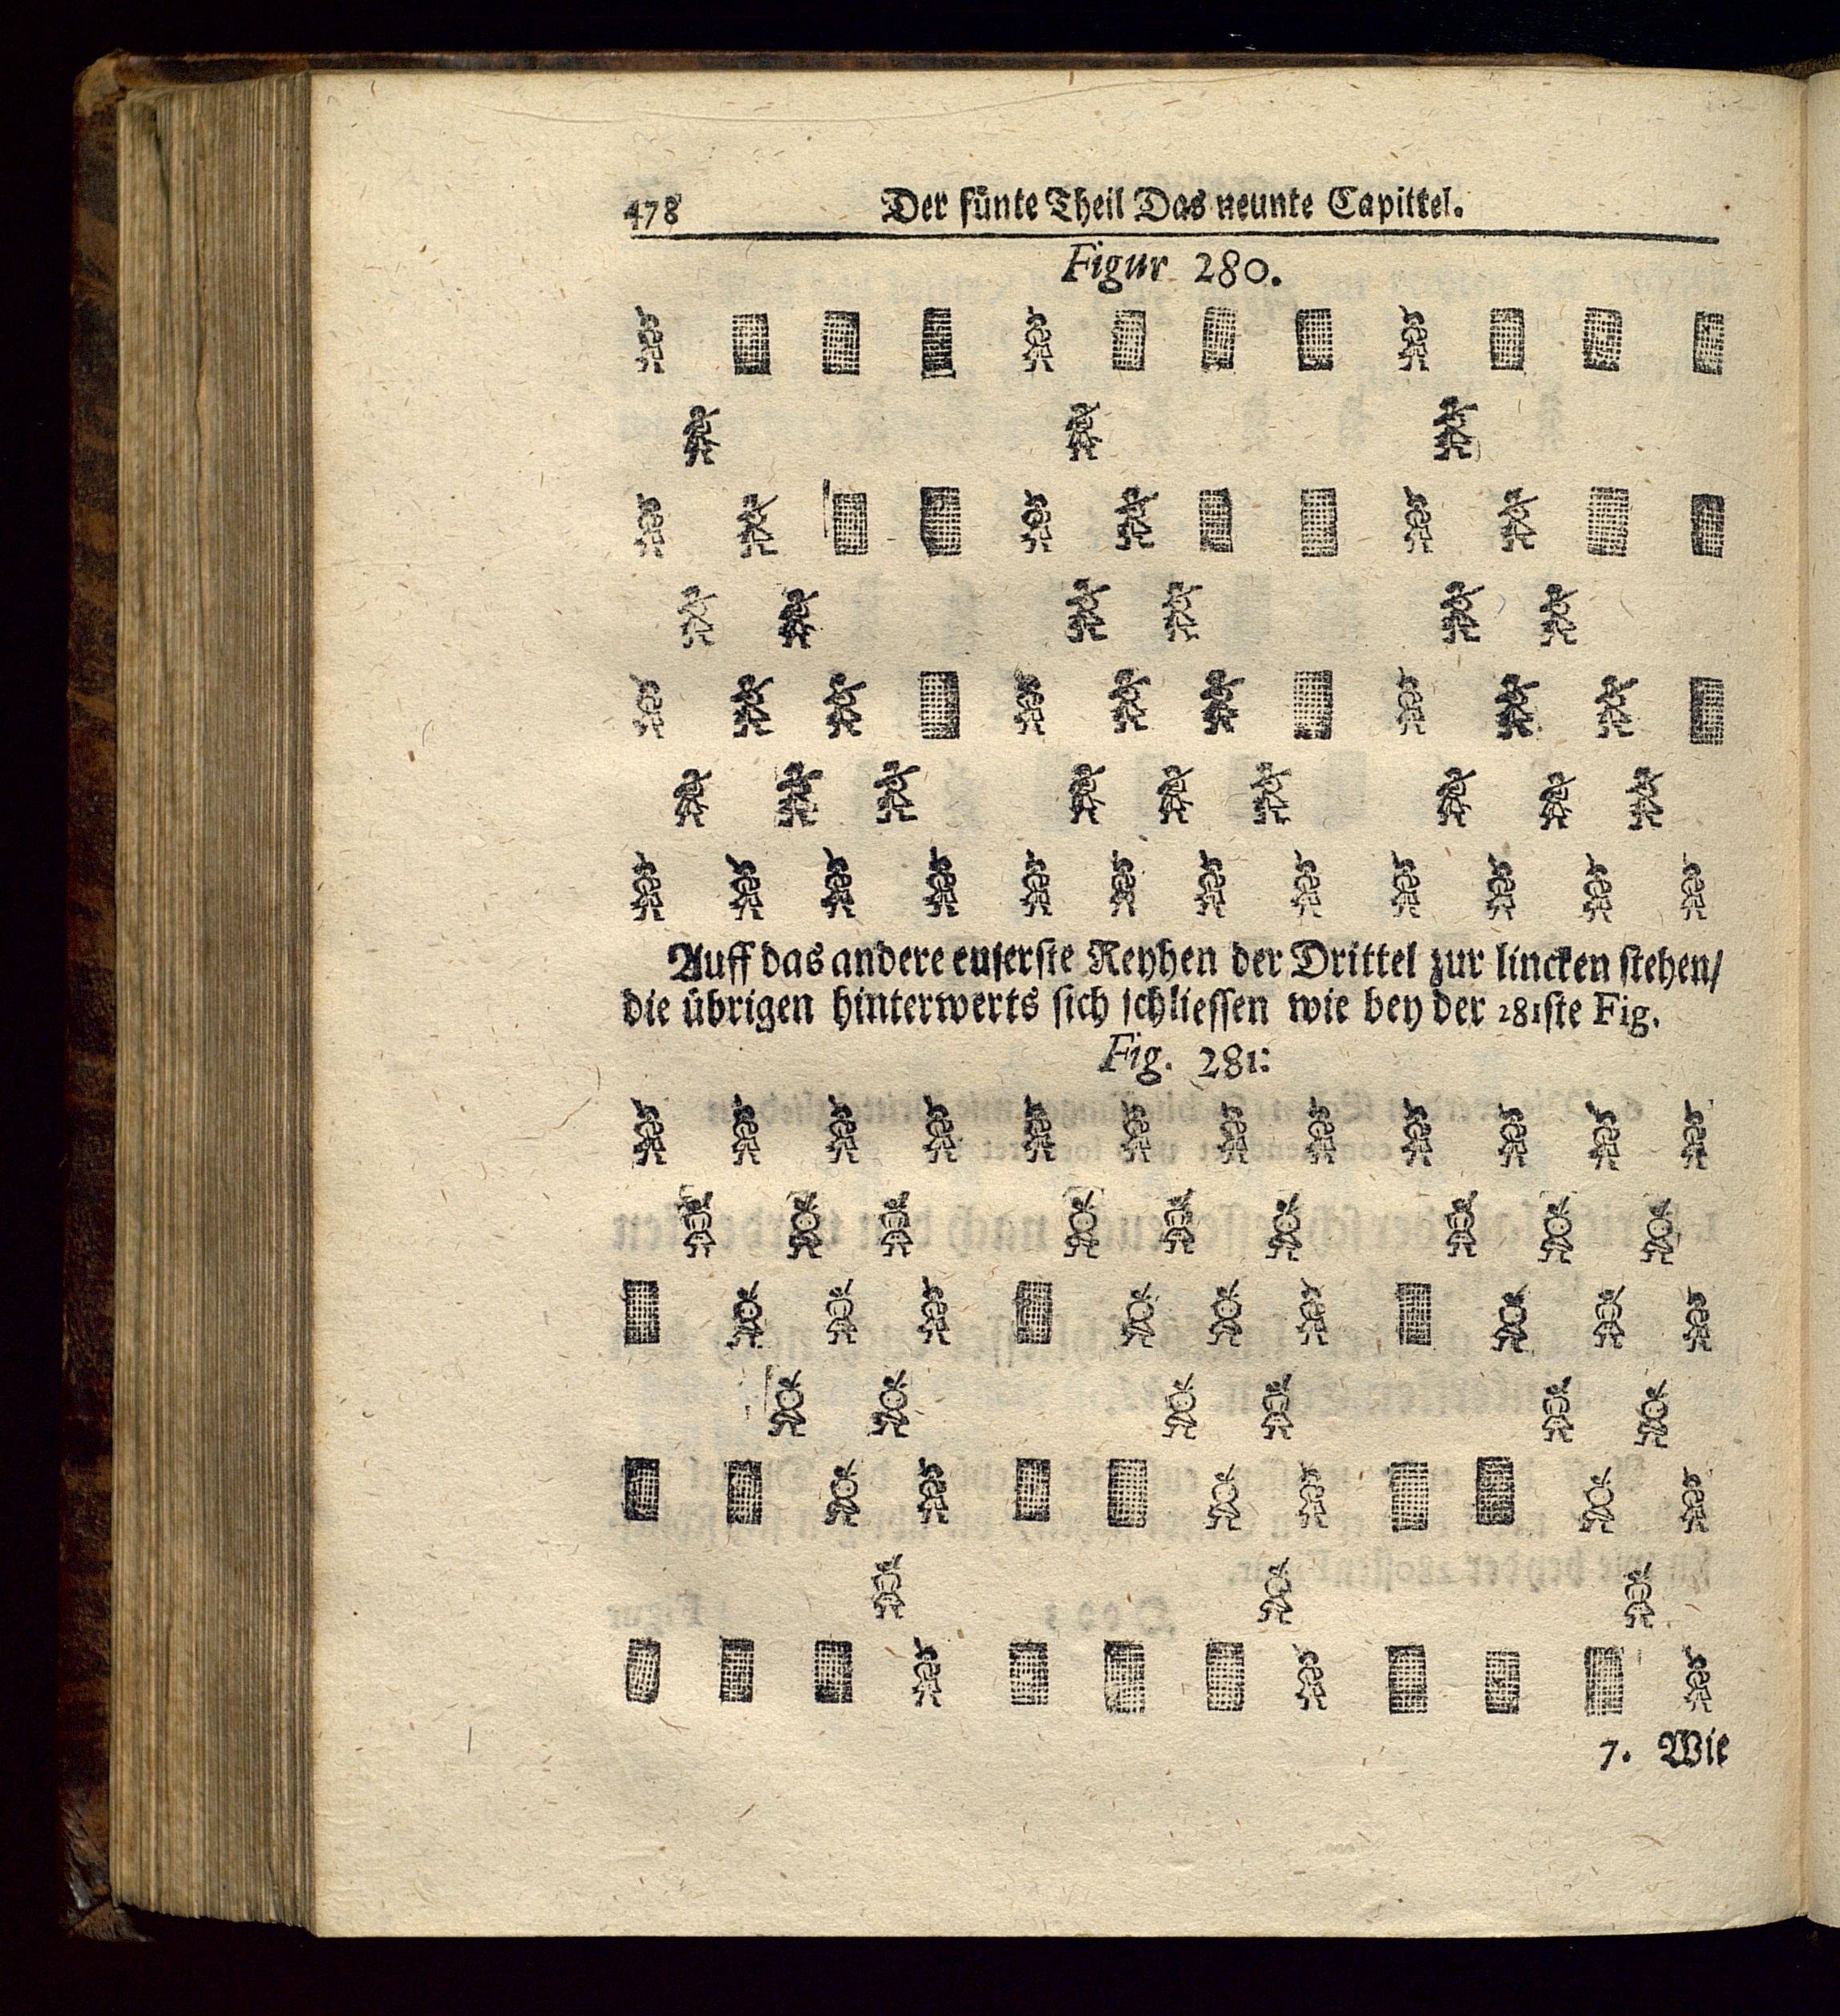 478 Der fünte Theil Das neunte Capittel.
Figur 280.
Auff das andere euserste Reyhen der Drittel zur lincken stehen/
die übrigen hinterwerts sich schliessen wie bey der 281ste Fig.
Fig. 281:
7. Wie